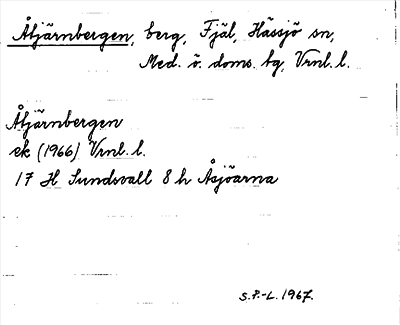 Åtjärnbergen, berg, Fjäl, Hässjö sn,
Med. ö. doms. bg, Vrnl. l.
Åtjärnbergen
ek (1966) Vrnl. l.
17 H Sundsvall 8 h Åsjöarna
S.P.-L. 1967.